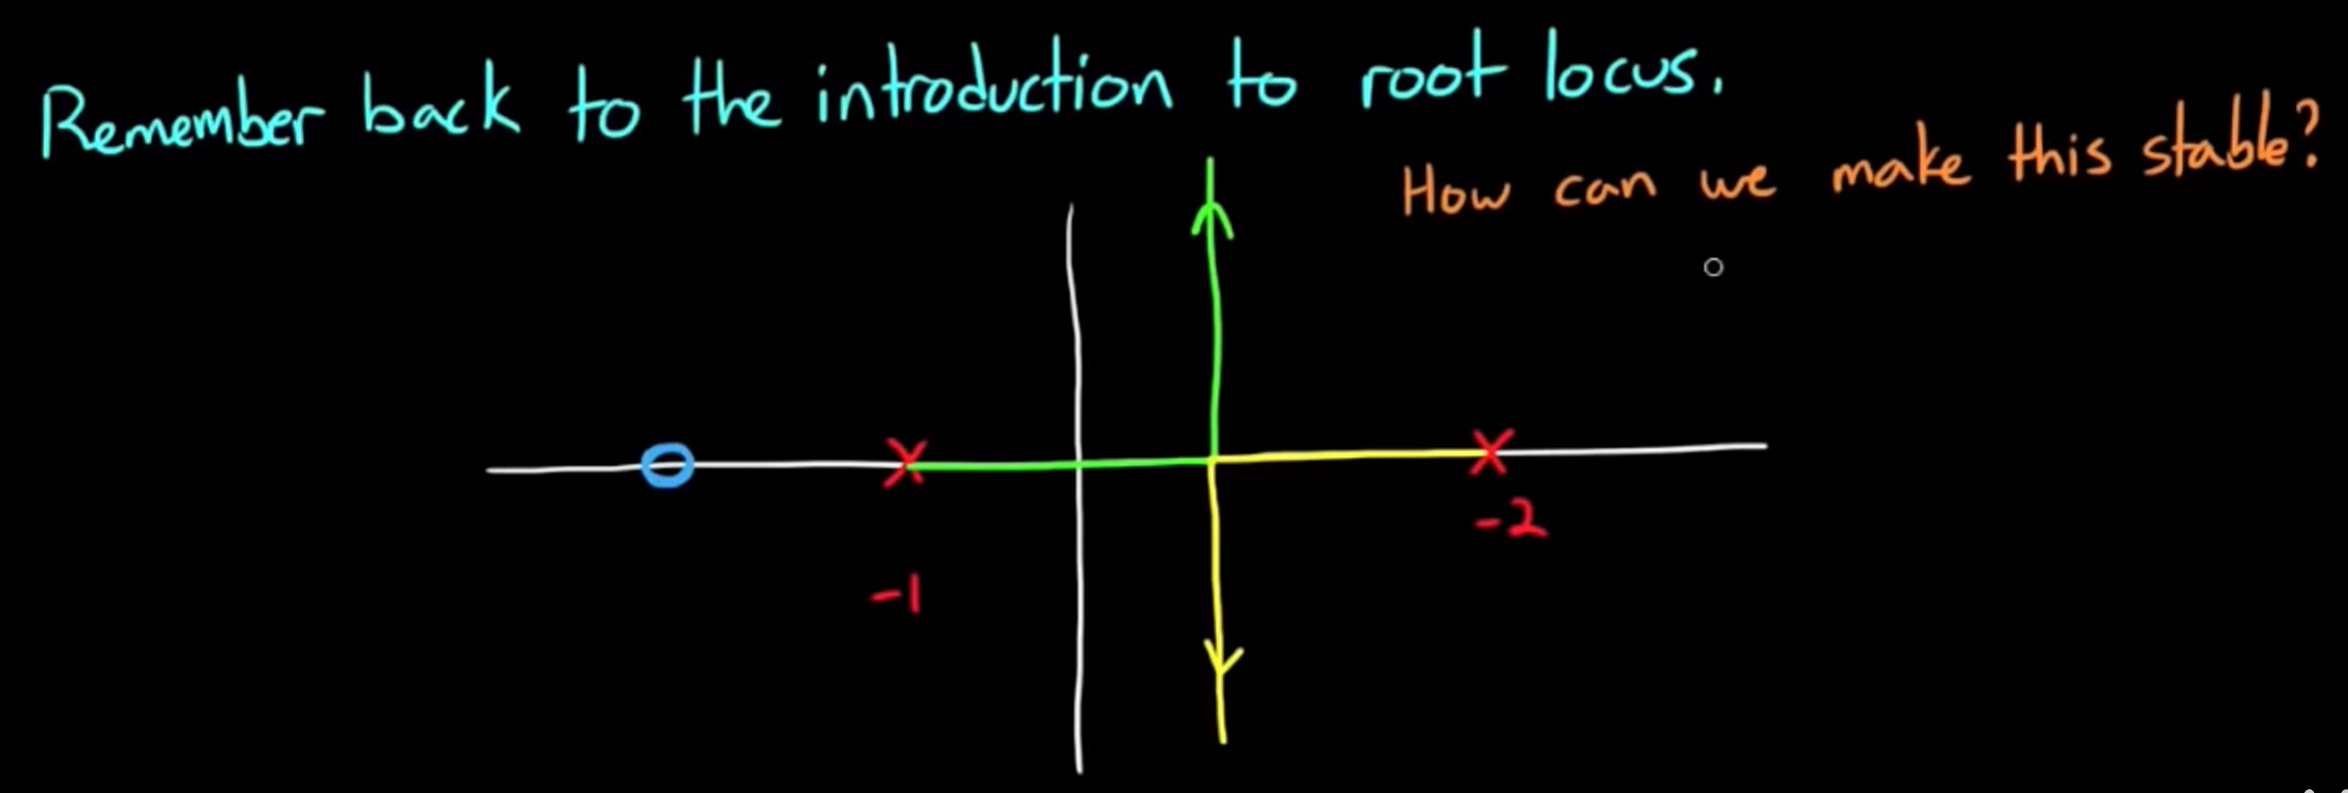 Remember back to the introduction to root locus.
How can we make this stable?
-2
-1